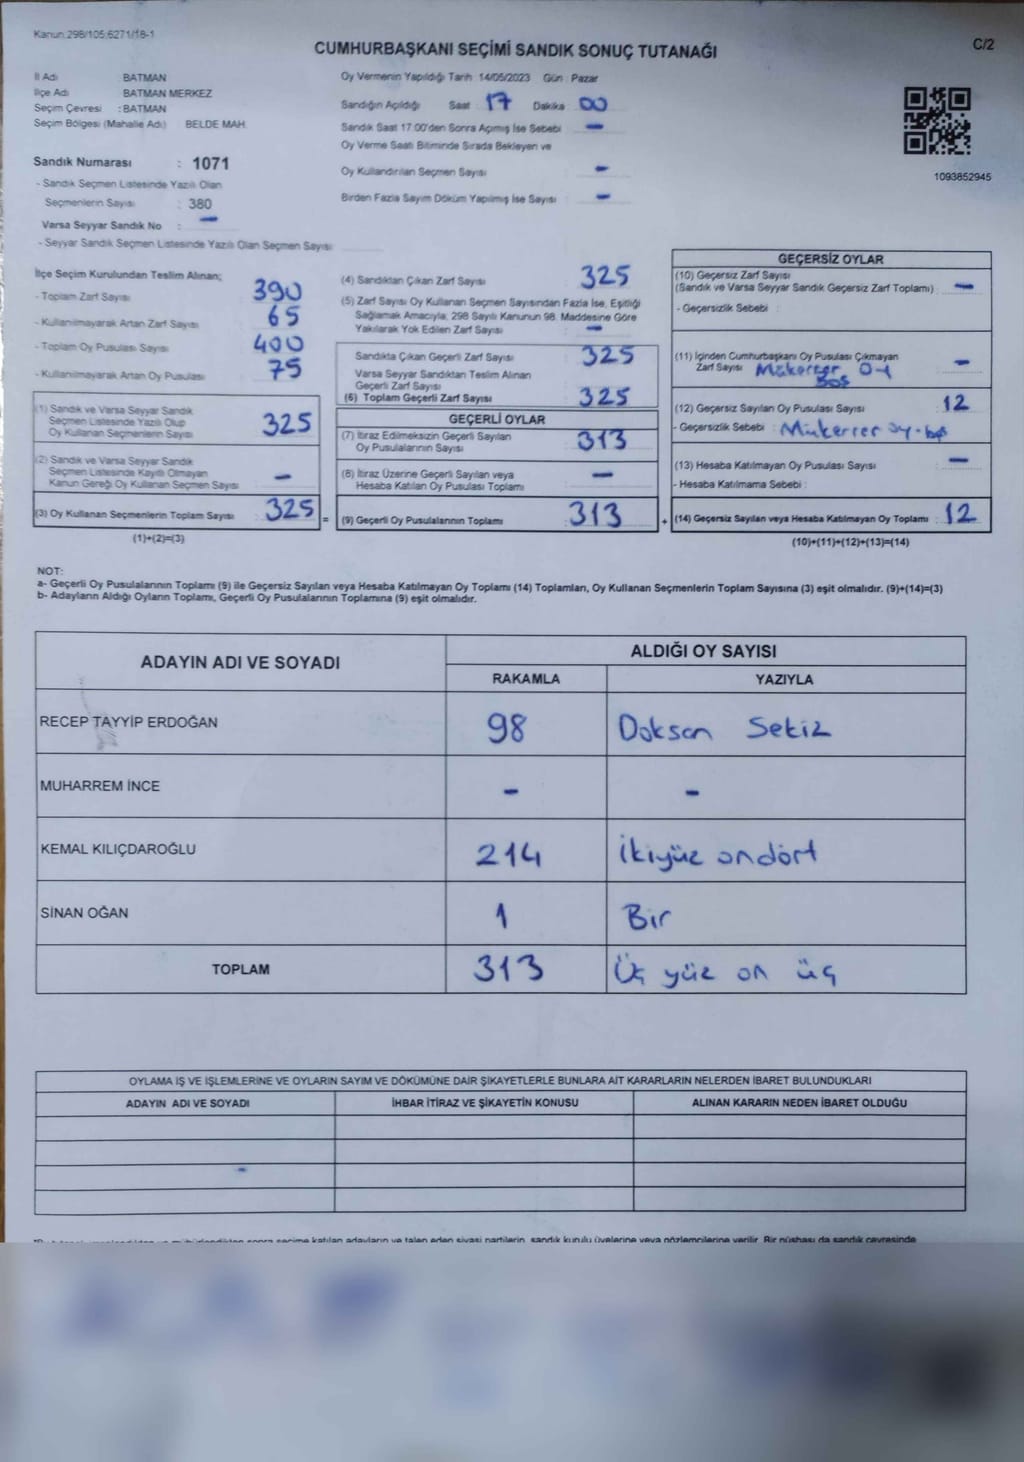 Kanun:298/105;6271/18-1
CUMHURBAŞKANI SEÇİMİ SANDIK SONUÇ TUTANAĞI
C/2
İl Adı BATMAN
İlçe Adı BATMAN MERKEZ
Seçim Çevresi : BATMAN
Seçim Bölgesi (Mahalle Adı) BELDE MAH.
Sandık Numarası : 1071
- Sandık Seçmen Listesinde Yazılı Olan
Seçmenlerin Sayısı : 380
Varsa Seyyar Sandık No : -
- Seyyar Sandık Seçmen Listesinde Yazılı Olan Seçmen Sayısı
Oy Vermenin Yapıldığı Tarih 14/05/2023 Gün : Pazar
Sandığın Açıldığı Saat 17 Dakika 00
Sandık Saat 17:00'den Sonra Açılmış İse Sebebi -
Oy Verme Saati Bitiminde Sırada Bekleyen ve
Oy Kullandırılan Seçmen Sayısı -
Birden Fazla Sayım Döküm Yapılmış İse Sayısı : -
1093852945
İlçe Seçim Kurulundan Teslim Alınan;
- Toplam Zarf Sayısı 390
- Kullanılmayarak Artan Zarf Sayısı 65
- Toplam Oy Pusulası Sayısı 400
- Kullanılmayarak Artan Oy Pusulası 75
(1) Sandık ve Varsa Seyyar Sandık
Seçmen Listesinde Yazılı Olup
Oy Kullanan Seçmenlerin Sayısı 325
(2) Sandık ve Varsa Seyyar Sandık
Seçmen Listesinde Kayıtlı Olmayan
Kanun Gereği Oy Kullanan Seçmen Sayısı -
(3) Oy Kullanan Seçmenlerin Toplam Sayısı 325 =
(1)+(2)=(3)
(4) Sandıktan Çıkan Zarf Sayısı 325
(5) Zarf Sayısı Oy Kullanan Seçmen Sayısından Fazla İse, Eşitliği
Sağlamak Amacıyla, 298 Sayılı Kanunun 98. Maddesine Göre
Yakılarak Yok Edilen Zarf Sayısı -
Sandıkta Çıkan Geçerli Zarf Sayısı 325
Varsa Seyyar Sandıktan Teslim Alınan
Geçerli Zarf Sayısı
(6) Toplam Geçerli Zarf Sayısı 325
GEÇERLİ OYLAR
(7) İtiraz Edilmeksizin Geçerli Sayılan
Oy Pusulalarının Sayısı 313
(8) İtiraz Üzerine Geçerli Sayılan veya
Hesaba Katılan Oy Pusulası Toplamı -
(9) Geçerli Oy Pusulalarının Toplamı 313 +
GEÇERSİZ OYLAR
(10) Geçersiz Zarf Sayısı
(Sandık ve Varsa Seyyar Sandık Geçersiz Zarf Toplamı) : -
- Geçersizlik Sebebi :
(11) İçinden Cumhurbaşkanı Oy Pusulası Çıkmayan
Zarf Sayısı Mükerrer Oy -
Boş
(12) Geçersiz Sayılan Oy Pusulası Sayısı : 12
- Geçersizlik Sebebi : Mükerrer oy-boş
(13) Hesaba Katılmayan Oy Pusulası Sayısı : -
- Hesaba Katılmama Sebebi :
(14) Geçersiz Sayılan veya Hesaba Katılmayan Oy Toplamı : 12
(10)+(11)+(12)+(13)=(14)
NOT:
a- Geçerli Oy Pusulalarının Toplamı (9) ile Geçersiz Sayılan veya Hesaba Katılmayan Oy Toplamı (14) Toplamları, Oy Kullanan Seçmenlerin Toplam Sayısına (3) eşit olmalıdır. (9)+(14)=(3)
b- Adayların Aldığı Oyların Toplamı, Geçerli Oy Pusulalarının Toplamına (9) eşit olmalıdır.
ADAYIN ADI VE SOYADI
ALDIĞI OY SAYISI
RAKAMLA YAZIYLA
RECEP TAYYİP ERDOĞAN 98 Doksan Sekiz
MUHARREM İNCE - -
KEMAL KILIÇDAROĞLU 214 İkiyüz ondört
SİNAN OĞAN 1 Bir
TOPLAM 313 Üç yüz on üç
OYLAMA İŞ VE İŞLEMLERİNE VE OYLARIN SAYIM VE DÖKÜMÜNE DAİR ŞİKAYETLERLE BUNLARA AİT KARARLARIN NELERDEN İBARET BULUNDUKLARI
ADAYIN ADI VE SOYADI İHBAR İTİRAZ VE ŞİKAYETİN KONUSU ALINAN KARARIN NEDEN İBARET OLDUĞU
-
sonra seçime katılan adayların ve talep eden siyasi partilerin, sandık kurulu üyelerine veya gözlemcilerine verilir. Bir nüshası da sandık çevresinde